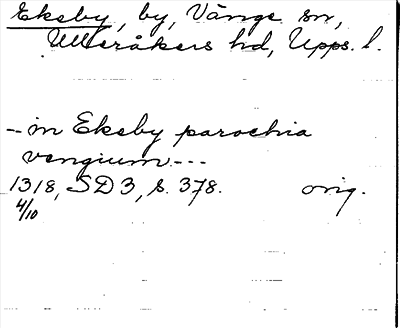 Eksby, by, Vänge sn,
Ulleråkers hd, Upps. l.
-- in Eksby parochia
vengium ---
1318, SD 3, s. 378. orig.
4/10